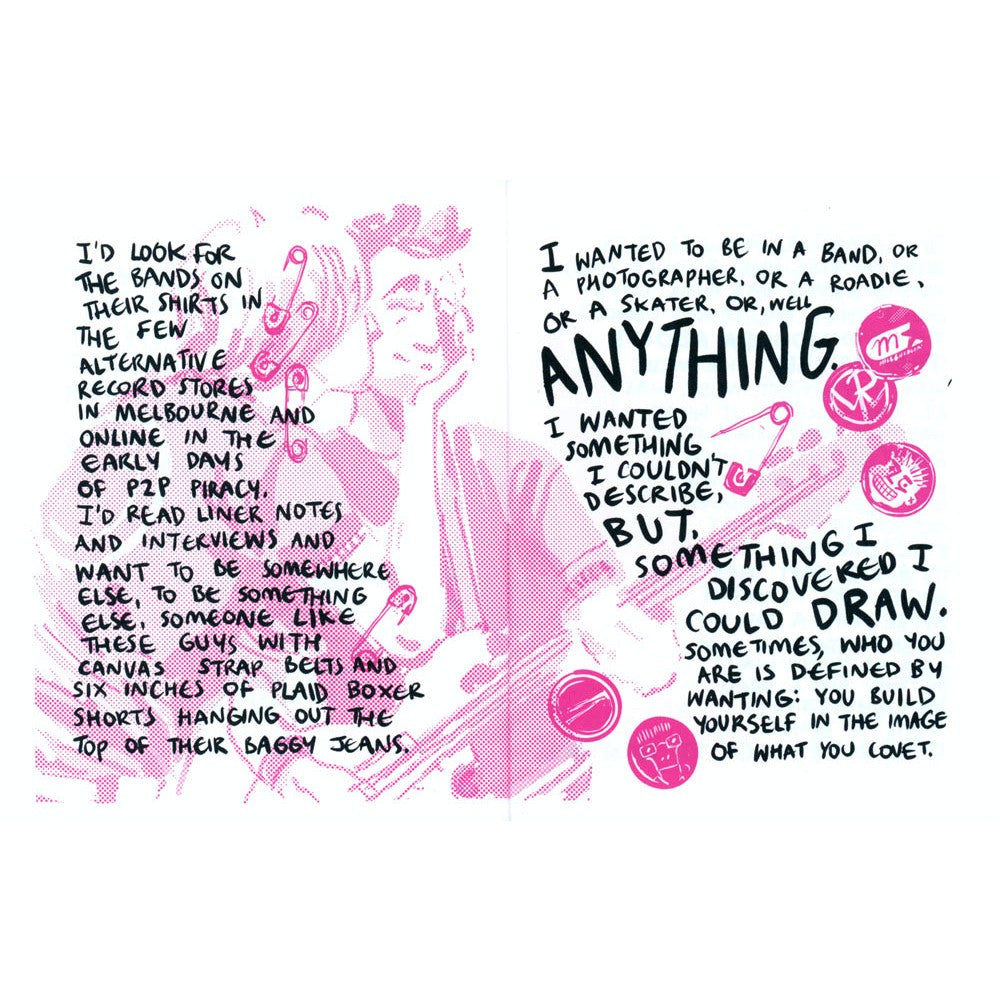 I'D LOOK FOR
THE BANDS ON
THEIR SHIRTS IN
THE FEW
ALTERNATIVE
RECORD STORES
IN MELBOURNE AND
ONLINE IN THE
EARLY DAYS
OF P2P PIRACY.
I'D READ LINER NOTES
AND INTERVIEWS AND
WANT TO BE SOMEWHERE
ELSE, TO BE SOMETHING
ELSE, SOMEONE LIKE
THESE GUYS WITH
CANVAS STRAP BELTS AND
SIX INCHES OF PLAID BOXER
SHORTS HANGING OUT THE
TOP OF THEIR BAGGY JEANS.
I WANTED TO BE IN A BAND, OR
A PHOTOGRAPHER, OR A ROADIE,
OR A SKATER, OR, WELL
ANYTHING.
I WANTED
SOMETHING
I COULDN'T
DESCRIBE,
BUT,
SOMETHING I
DISCOVERED I
COULD DRAW.
SOMETIMES, WHO YOU
ARE IS DEFINED BY
WANTING: YOU BUILD
YOURSELF IN THE IMAGE
OF WHAT YOU COVET.